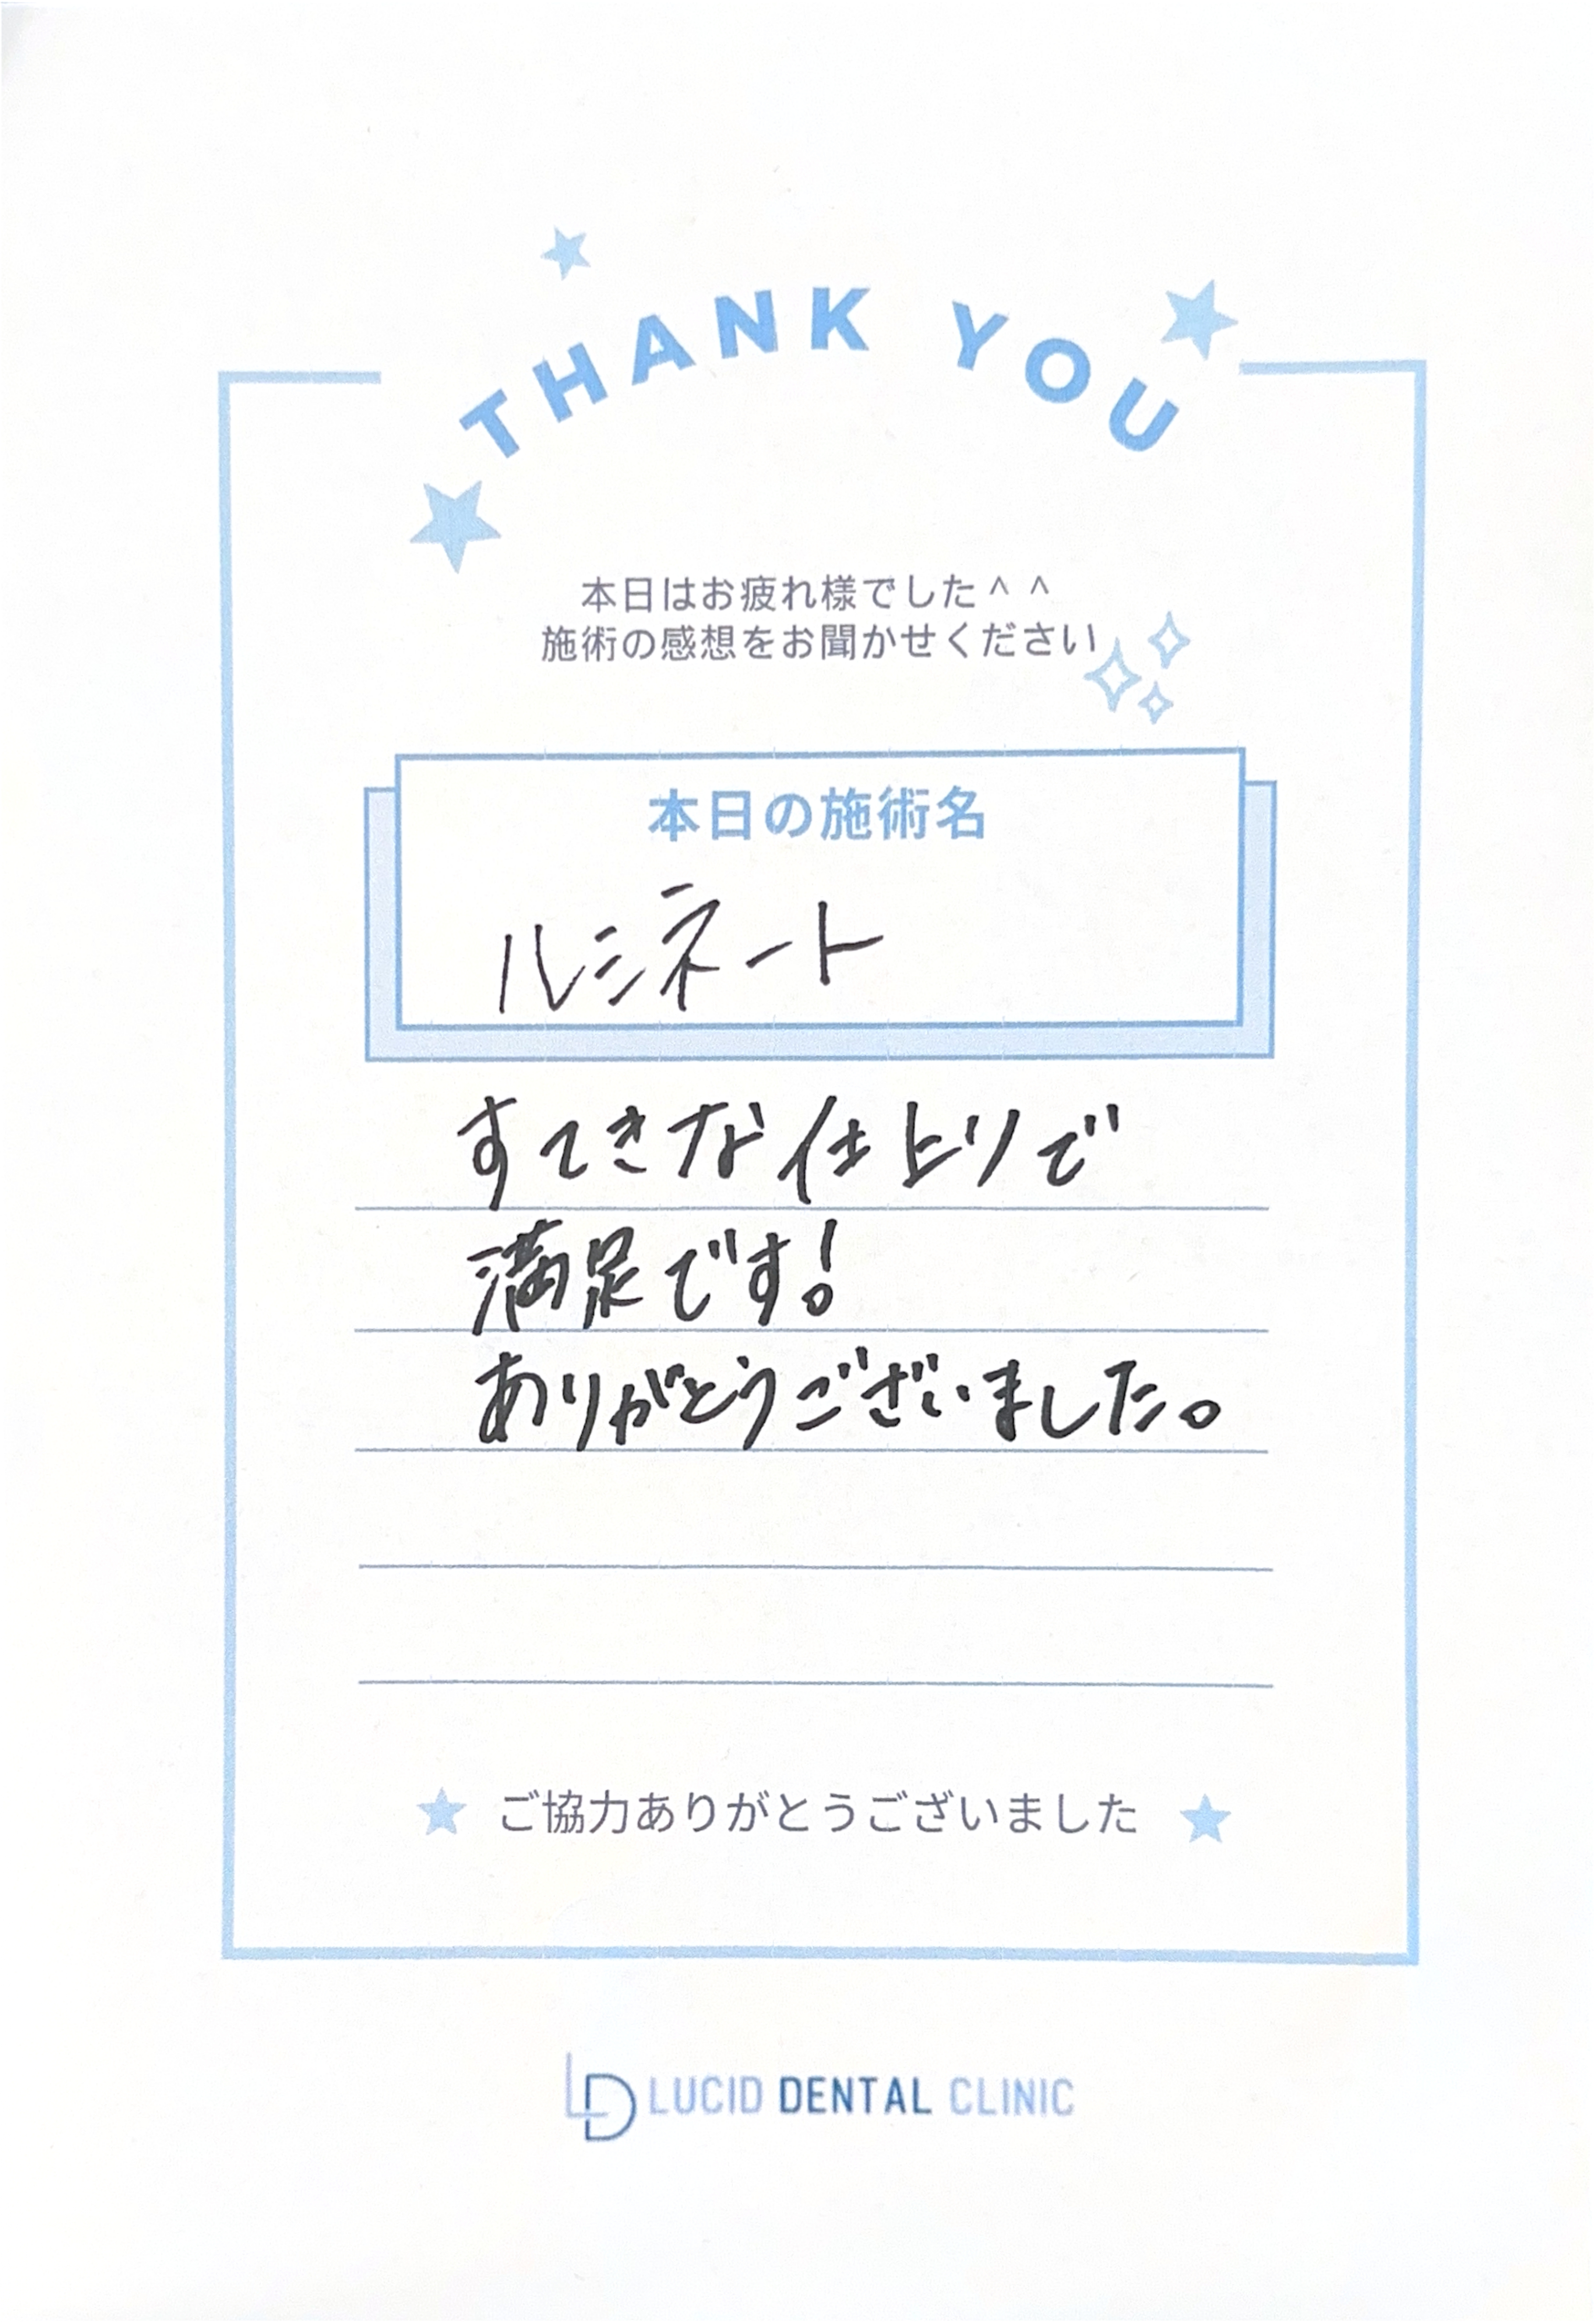 THANK YOU
本日はお疲れ様でした＾＾
施術の感想をお聞かせください
本日の施術名
ルシネート
すてきな仕上りで
満足です!
ありがとうございました。
ご協力ありがとうございました
LD LUCID DENTAL CLINIC